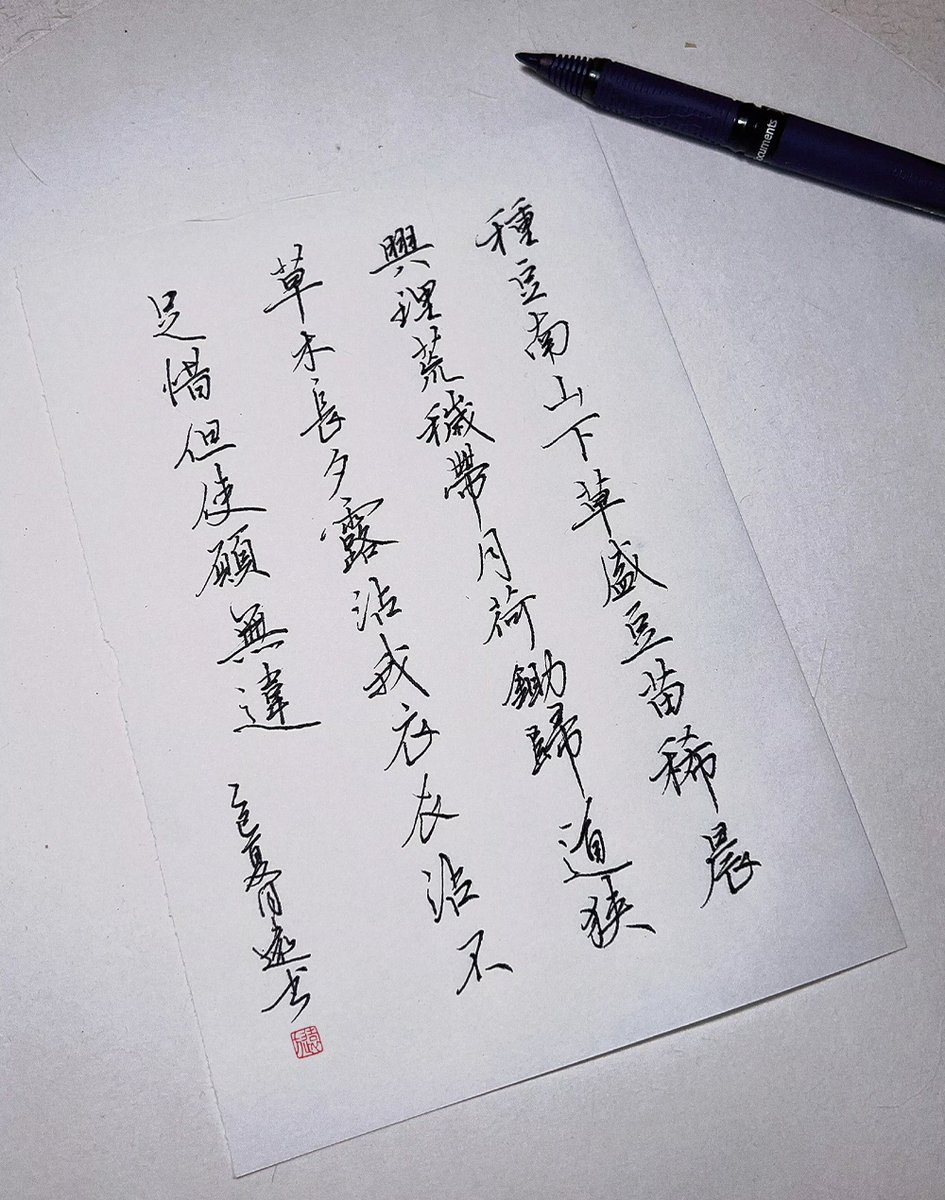 種豆南山下草盛豆苗稀晨
興理荒穢帶月荷鋤歸道狹
草木長夕露沾我衣衣沾不
足惜但使願無違
乙巳夏月遠書
ocuments